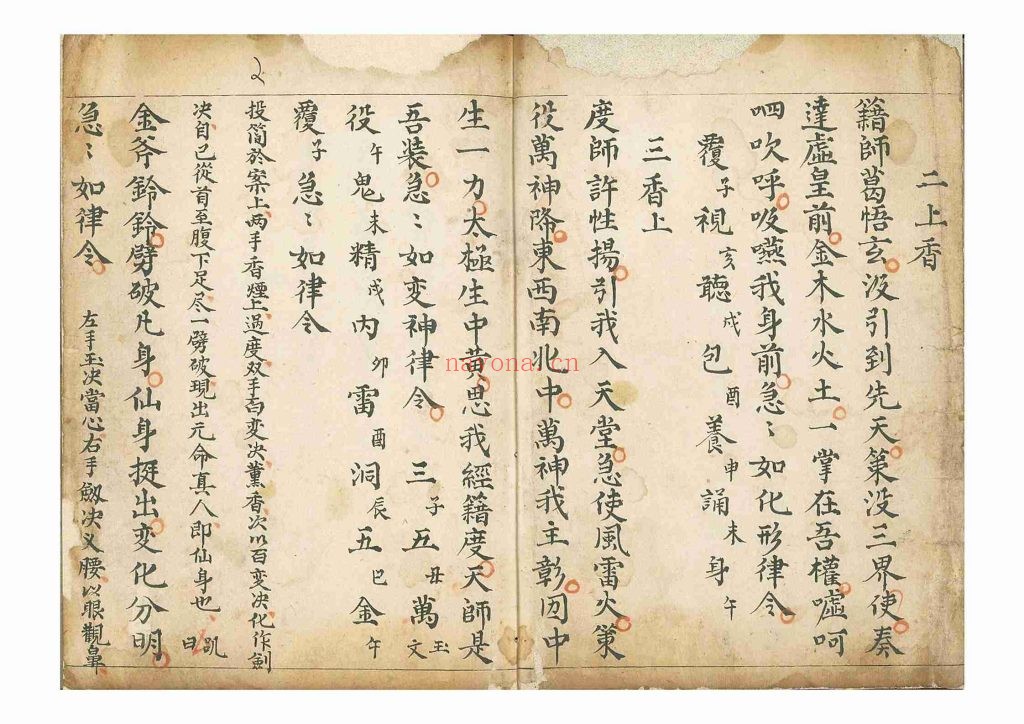 二上香
籍師葛悟玄没引到先天策没三界使奏
達虛皇前金木水火土一掌在吾權噓呵
呬吹呼吸嚥我身前急〻如化形律令
覆子視亥聽戌包酉養申誦未身午
三香上
度師許性揚引我入天堂急使風雷火策
役萬神降東西南北中萬神我主彰囙中
生一力太極生中黄思我經籍度天師是
吾装急〻如变神律令 三子五丑萬玉文
役午鬼未精戌内卯雷酉洞辰五巳金午
覆子急〻如律令
投简於案上两手香煙上過度双手百变决薰香次以百变决化作劍
决自己從首至腹下足尽一劈破現出元命真人即仙身也 凯曰
金斧鈴鈴劈破凡身仙身挺出变化分明
急〻如律令 左手玉决當心右手劔决义腰以眼觀鼻
2
nayona.cn